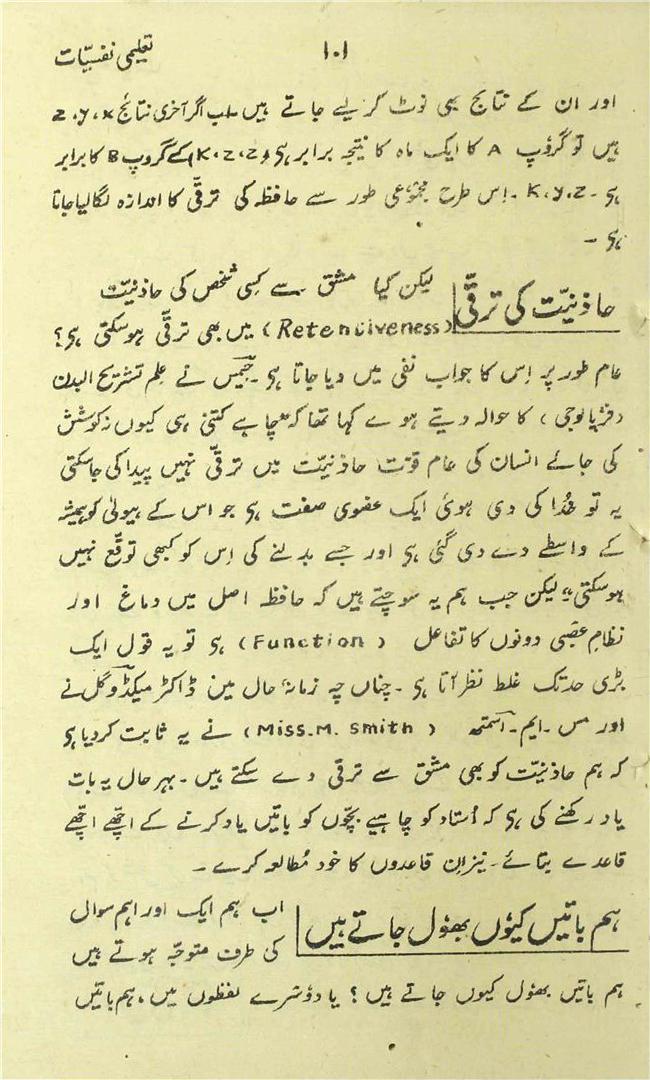 تعلیمی نفسیّات ۱۰۱
اور ان کے نتایج بھی نوٹ کر لیے جاتے ہیں۔ اب اگر آخری نتائج z، y، x
ہیں تو گرؤپ A کا ایک ماہ کا نتیجہ برابر ہی (K، z، z) کے گروپ B کا برابر
ہی۔ K، y، z۔ اِس طرح مجمؤعی طور سے حافظہ کی ترقّی کا اندازہ لگا لیا جاتا
ہی۔
حاذنیّت کی ترقّی
لیکن کیا مشق سے کِسی شخص کی حاذنیّت
(Retentiveness) میں بھی ترقّی ہوسکتی ہی؟
عام طور پر اِس کا جواب نفی میں دیا جاتا ہی۔ جیمس نے عِلم تشریح البدن
(فزیالوجی) کا حوالہ دیتے ہوے کہا تھا کہ "چاہے کتنی ہی کیوں نہ کوشش
کی جائے انسان کی عام قوّت حاذنیّت میں ترقّی نہیں پیدا کی جاسکتی
یہ تو خُدا کی دی ہوئی ایک عضوی صفت ہی جو اس کے ہیولیٰ کو ہمیشہ
کے واسطے دے دی گئی ہی اور جسے بدلنے کی اِس کو کبھی توقّع نہیں
ہوسکتی" لیکن جب ہم یہ سوچتے ہیں کہ حافظہ اصل میں دماغ اور
نظامِ عصَبی دونوں کا تفاعل (Function) ہی تو یہ قول ایک
بڑی حد تک غلط نظر آتا ہی۔ چناں چہ زمانۂ حال مین ڈاکٹر میکڈوگل نے
اور مس۔ ایم۔ اسمتھ (Miss. M. Smith) نے یہ ثابت کردیا ہی
کہ ہم حاذنیّت کو بھی مشق سے ترقی دے سکتے ہیں۔ بہر حال یہ بات
یاد رکھنے کی ہی کہ اُستاد کو چاہیے بچّوں کو باتیں یاد کرنے کے اچھّے اچھّے
قاعدے بتائے۔ نیز اِن قاعدوں کا خود مُطالعہ کرے۔
ہم باتیں کیوں بھؤل جاتے ہیں
اب ہم ایک اور اہم سوال
کی طرف متوجّہ ہوتے ہیں
ہم باتیں بھؤل کیوں جاتے ہیں؟ یا دؤسرے لفظوں میں، ہم باتیں